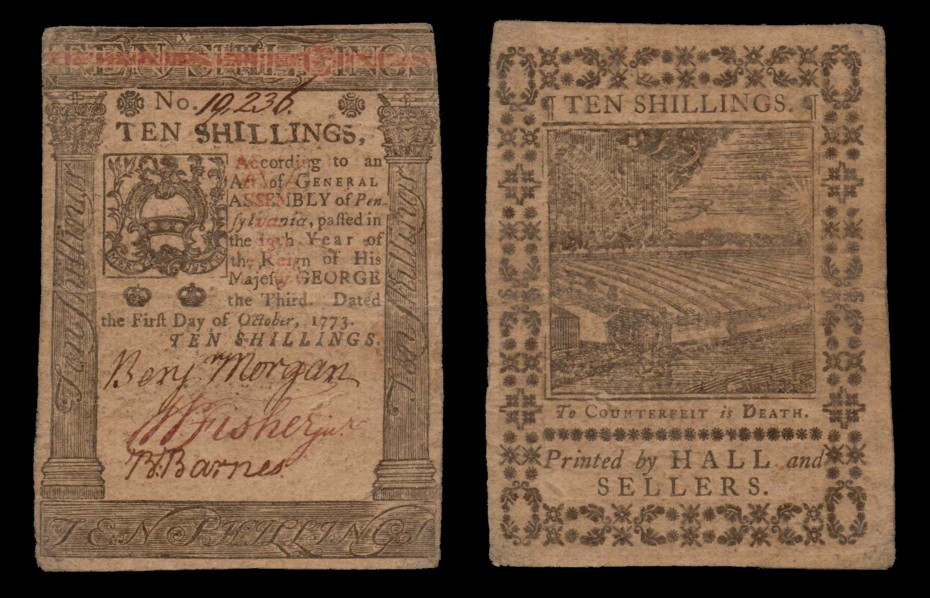 TEN SHILLINGS
No. 19,236.
TEN SHILLINGS,
According to an
Act of GENERAL
ASSEMBLY of Pen-
sylvania, paſſed in
the 13th Year of
the Reign of His
Majeſty GEORGE
the Third. Dated
the Firſt Day of October, 1773.
TEN SHILLINGS.
Benj.n Morgan
Fisher jun.r
B. Barnes
Ten Shillings
Ten Shillings
TEN SHILLINGS
TEN SHILLINGS.
To COUNTERFEIT is DEATH.
Printed by HALL and
SELLERS.